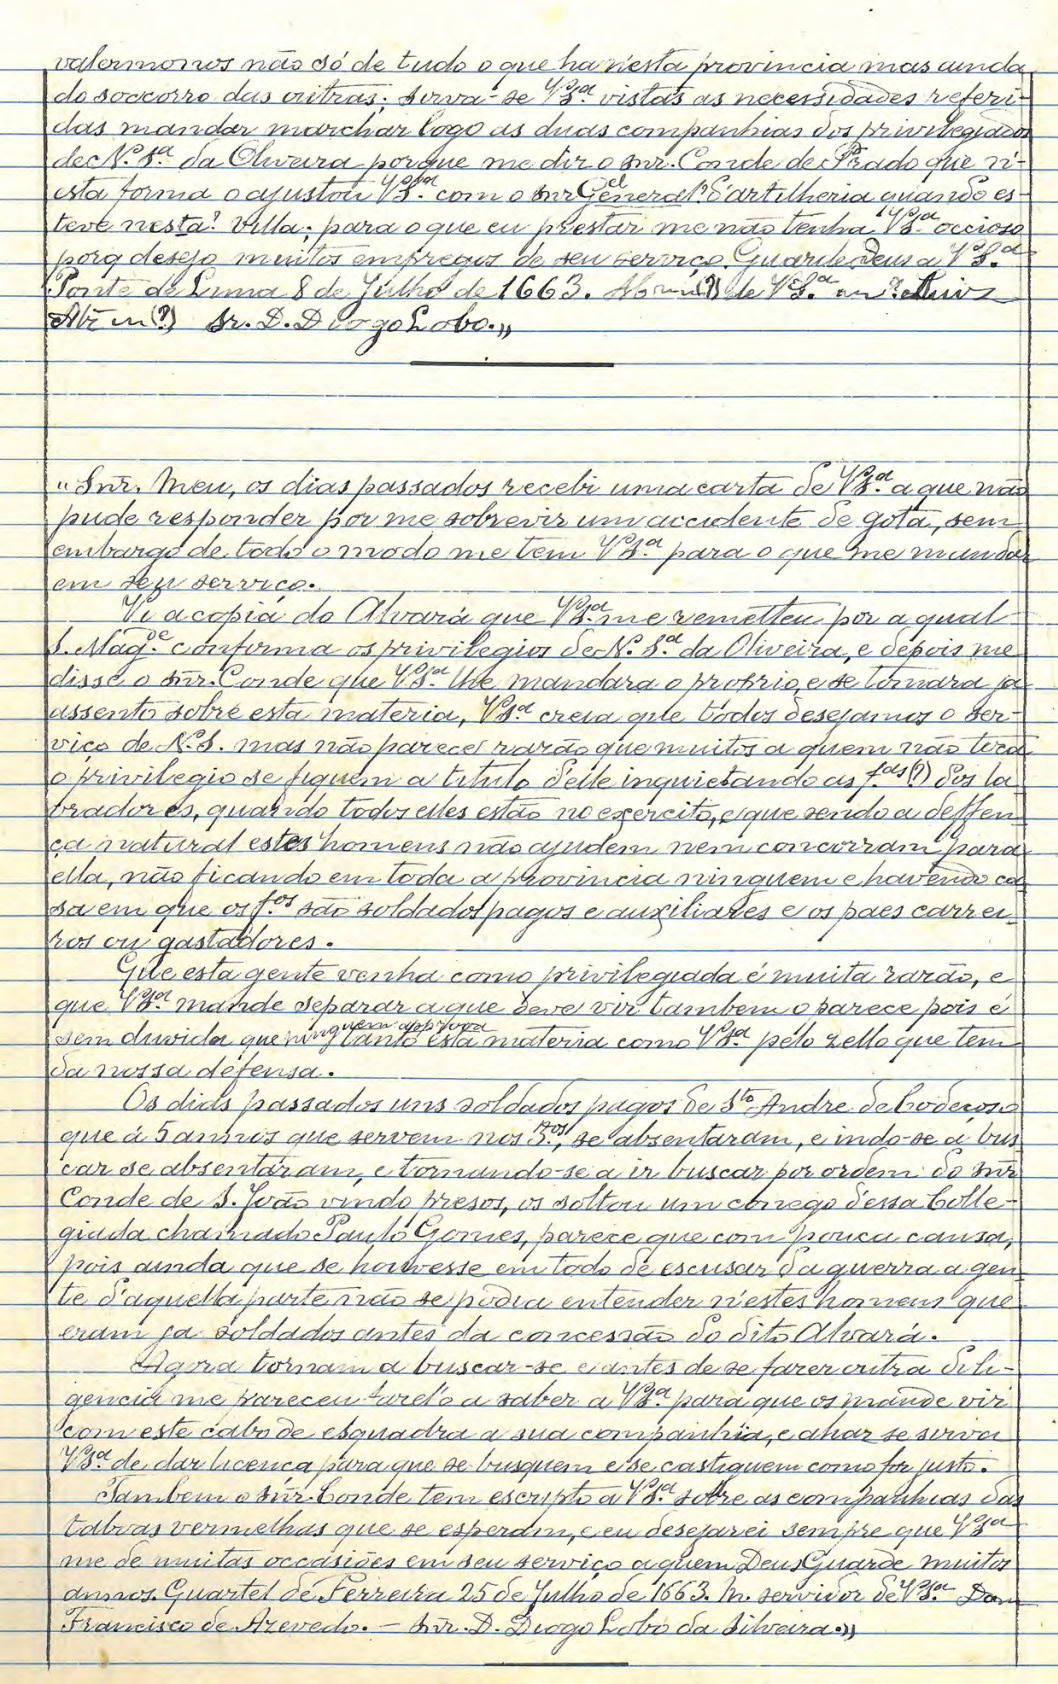 valermonos não só de tudo o que ha n'esta provincia mas ainda
do soccorro das outras; sirva-se VSª. vistas as necessidades referi-
das mandar marchar logo as duas companhias dos privilegiados
de N. Sª da Oliveira porque me diz o snr. Conde de Prado que n'-
esta forma o ajustou VSª. com o snr General d'artilheria quando es-
teve nesta? villa; para o que eu prestar me não tenha VSª occioso
porq desejo muitos empregos de seu serviço. Guarde Deus a VSª.
Ponte de Lima 8 de Julho de 1663. (?) de VSª.
(?) Sr. D. Diogo Lobo.»
"Snr. Meu, os dias passados recebi uma carta de VSª. a que não
pude responder por me sobrevir um accidente de gota, sem
embargo de todo o modo me tem VSª para o que me mandar
em seu serviço.
Vi a copia do Alvará que VSª me remetteu por a qual
S. Magde. confirma os privilegios de N. Sª da Oliveira, e depois me
disse o snr. Conde que VSª lhe mandara o proprio, e se tomara já
assento sobre esta materia, VSª creia que todos desejamos o ser-
viço de N. S. mas não parece razão que muitos a quem não toca
o privilegio se fiquem a titulo d'elle inquietando as fas(?) dos la
vradores, quando todos elles estão no exercito, e que sendo a deffen
ça natural estes homens não ajudem nem concorram para
ella, não ficando em toda a provincia ninguem e havendo ca
sa em que os fos são soldados pagos e auxiliares e os paes carrei-
ros ou gastadores.
Que esta gente venha como privilegiada é muita razão, e
que VSª mande separar a que deve vir tambem o parece pois é
sem duvida que ninguem approva tanto esta materia como VSª pelo zello que tem
da nossa defensa.
Os dias passados uns soldados pagos de Sto Andre de Codeçoso
que á 5 annos que servem nos 3os, se absentaram, e indo-se a bus
car se absentáram, e tornando-se a ir buscar por ordem do snr
Conde de S. João vindo presos, os soltou um conego d'essa Colle-
giada chamado Paulo Gomes, parece que com pouca causa,
pois ainda que se houvesse em todo de escusar da guerra a gen
te d'aquella parte não se podia entender n'estes homens que
eram já soldados antes da concessão do dito Alvará.
Agora tornam a buscar-se e antes de se fazer outra dili-
gencia me pareceu fazel-o a saber a VSª para que os mande vir
com este cabo de esquadra a sua companhia, e a haz se sirva
VSª de dar licença para que se busquem e se castiguem como for justo.
Tambem o snr. Conde tem escripto a VSª sobre as companhias das
tabvas vermelhas que se esperam, e eu desejarei sempre que VSª
me de muitas occasiões em seu serviço a quem Deus Guarde muitos
annos. Quartel de Ferreira 25 de Julho de 1663. M. servidor de VSª. Dom
Francisco de Azevedo. — Snr. D. Diogo Lobo da Silveira.»